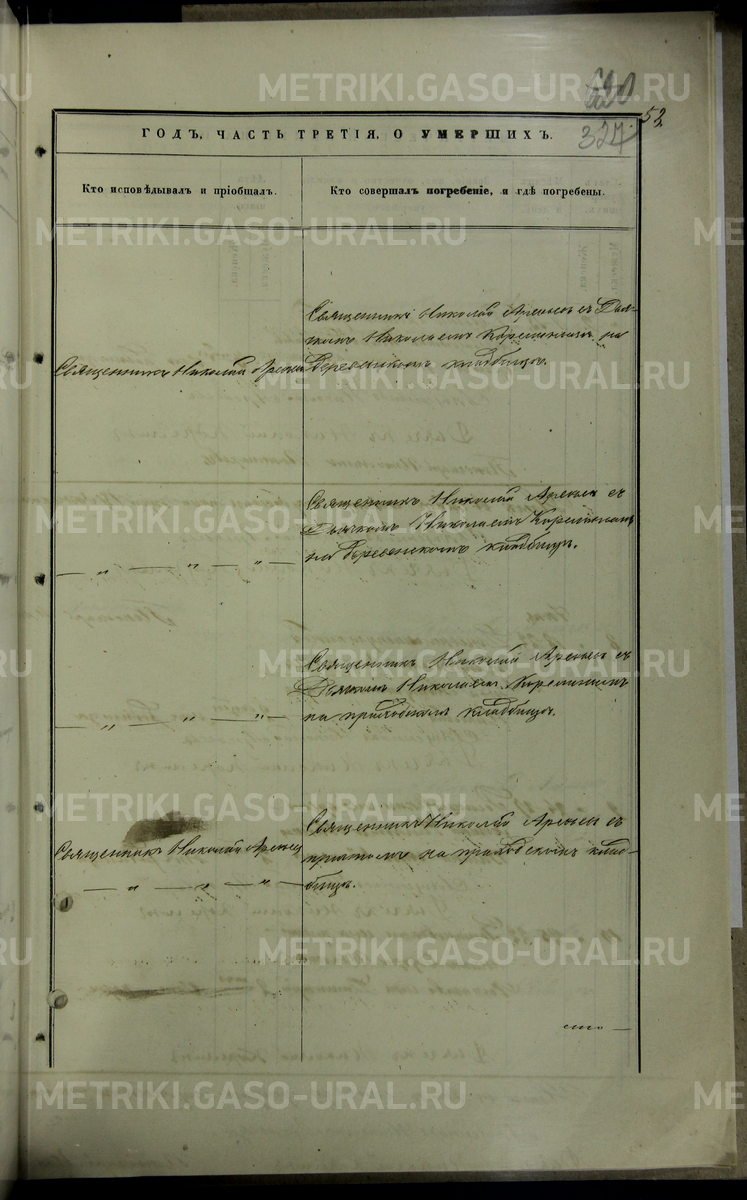 52
327
ГОДЪ, ЧАСТЬ ТРЕТІЯ, О УМЕРШИХЪ.
Кто исповѣдывалъ и пріобщалъ.
Кто совершалъ погребеніе, и гдѣ погребены.
Священникъ Николай
Священникъ Николай съ Дья-
комъ Николаемъ на
Деревенскомъ кладбищѣ.
— „ — „ — „ —
Священникъ Николай съ
Дьячкомъ Николаемъ
на Деревенскомъ кладбищѣ.
— „ — „ — „ —
Священникъ Николай съ
Дьячкомъ Николаемъ
на приходскомъ кладбищѣ.
Священникъ Николай
— „ — „ — „ —
Священникъ Николай съ
причтомъ на приходскомъ клад-
бищѣ.
METRIKI.GASO-URAL.RU
METRIKI.GASO-URAL.RU
METRIKI.GASO-URAL.RU
METRIKI.GASO-URAL.RU
METRIKI.GASO-URAL.RU
METRIKI.GASO-URAL.RU
METRIKI.GASO-URAL.RU
METRIKI.GASO-URAL.RU